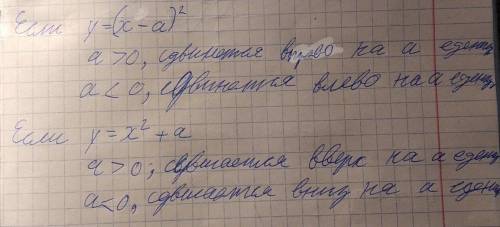 Если y=(x-a)²
a>0, сдвигается вправо на a едениц
a<0, сдвигается влево на a едениц
Если y=x²+a
a>0; сдвигается вверх на a едениц
a<0, сдвигается вниз на a едениц